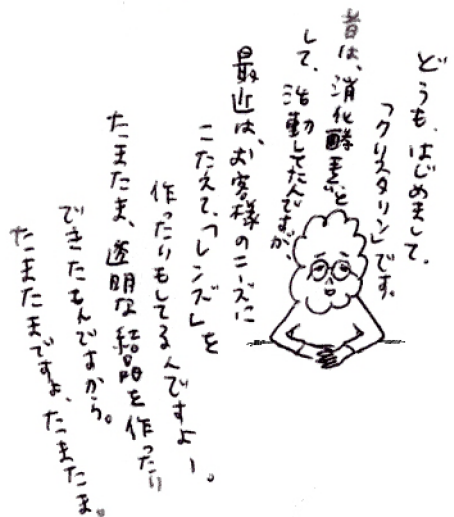 どうも、はじめまして、
「クリスタリン」です。
昔は、消化酵素と
して、活動してたんですが、
最近は、お客様のニーズに
こたえて、「レンズ」を
作ったりもしてるんですよー。
たまたま、透明な結晶を作ったり
できたもんですから。
たまたまですよ、たまたま。